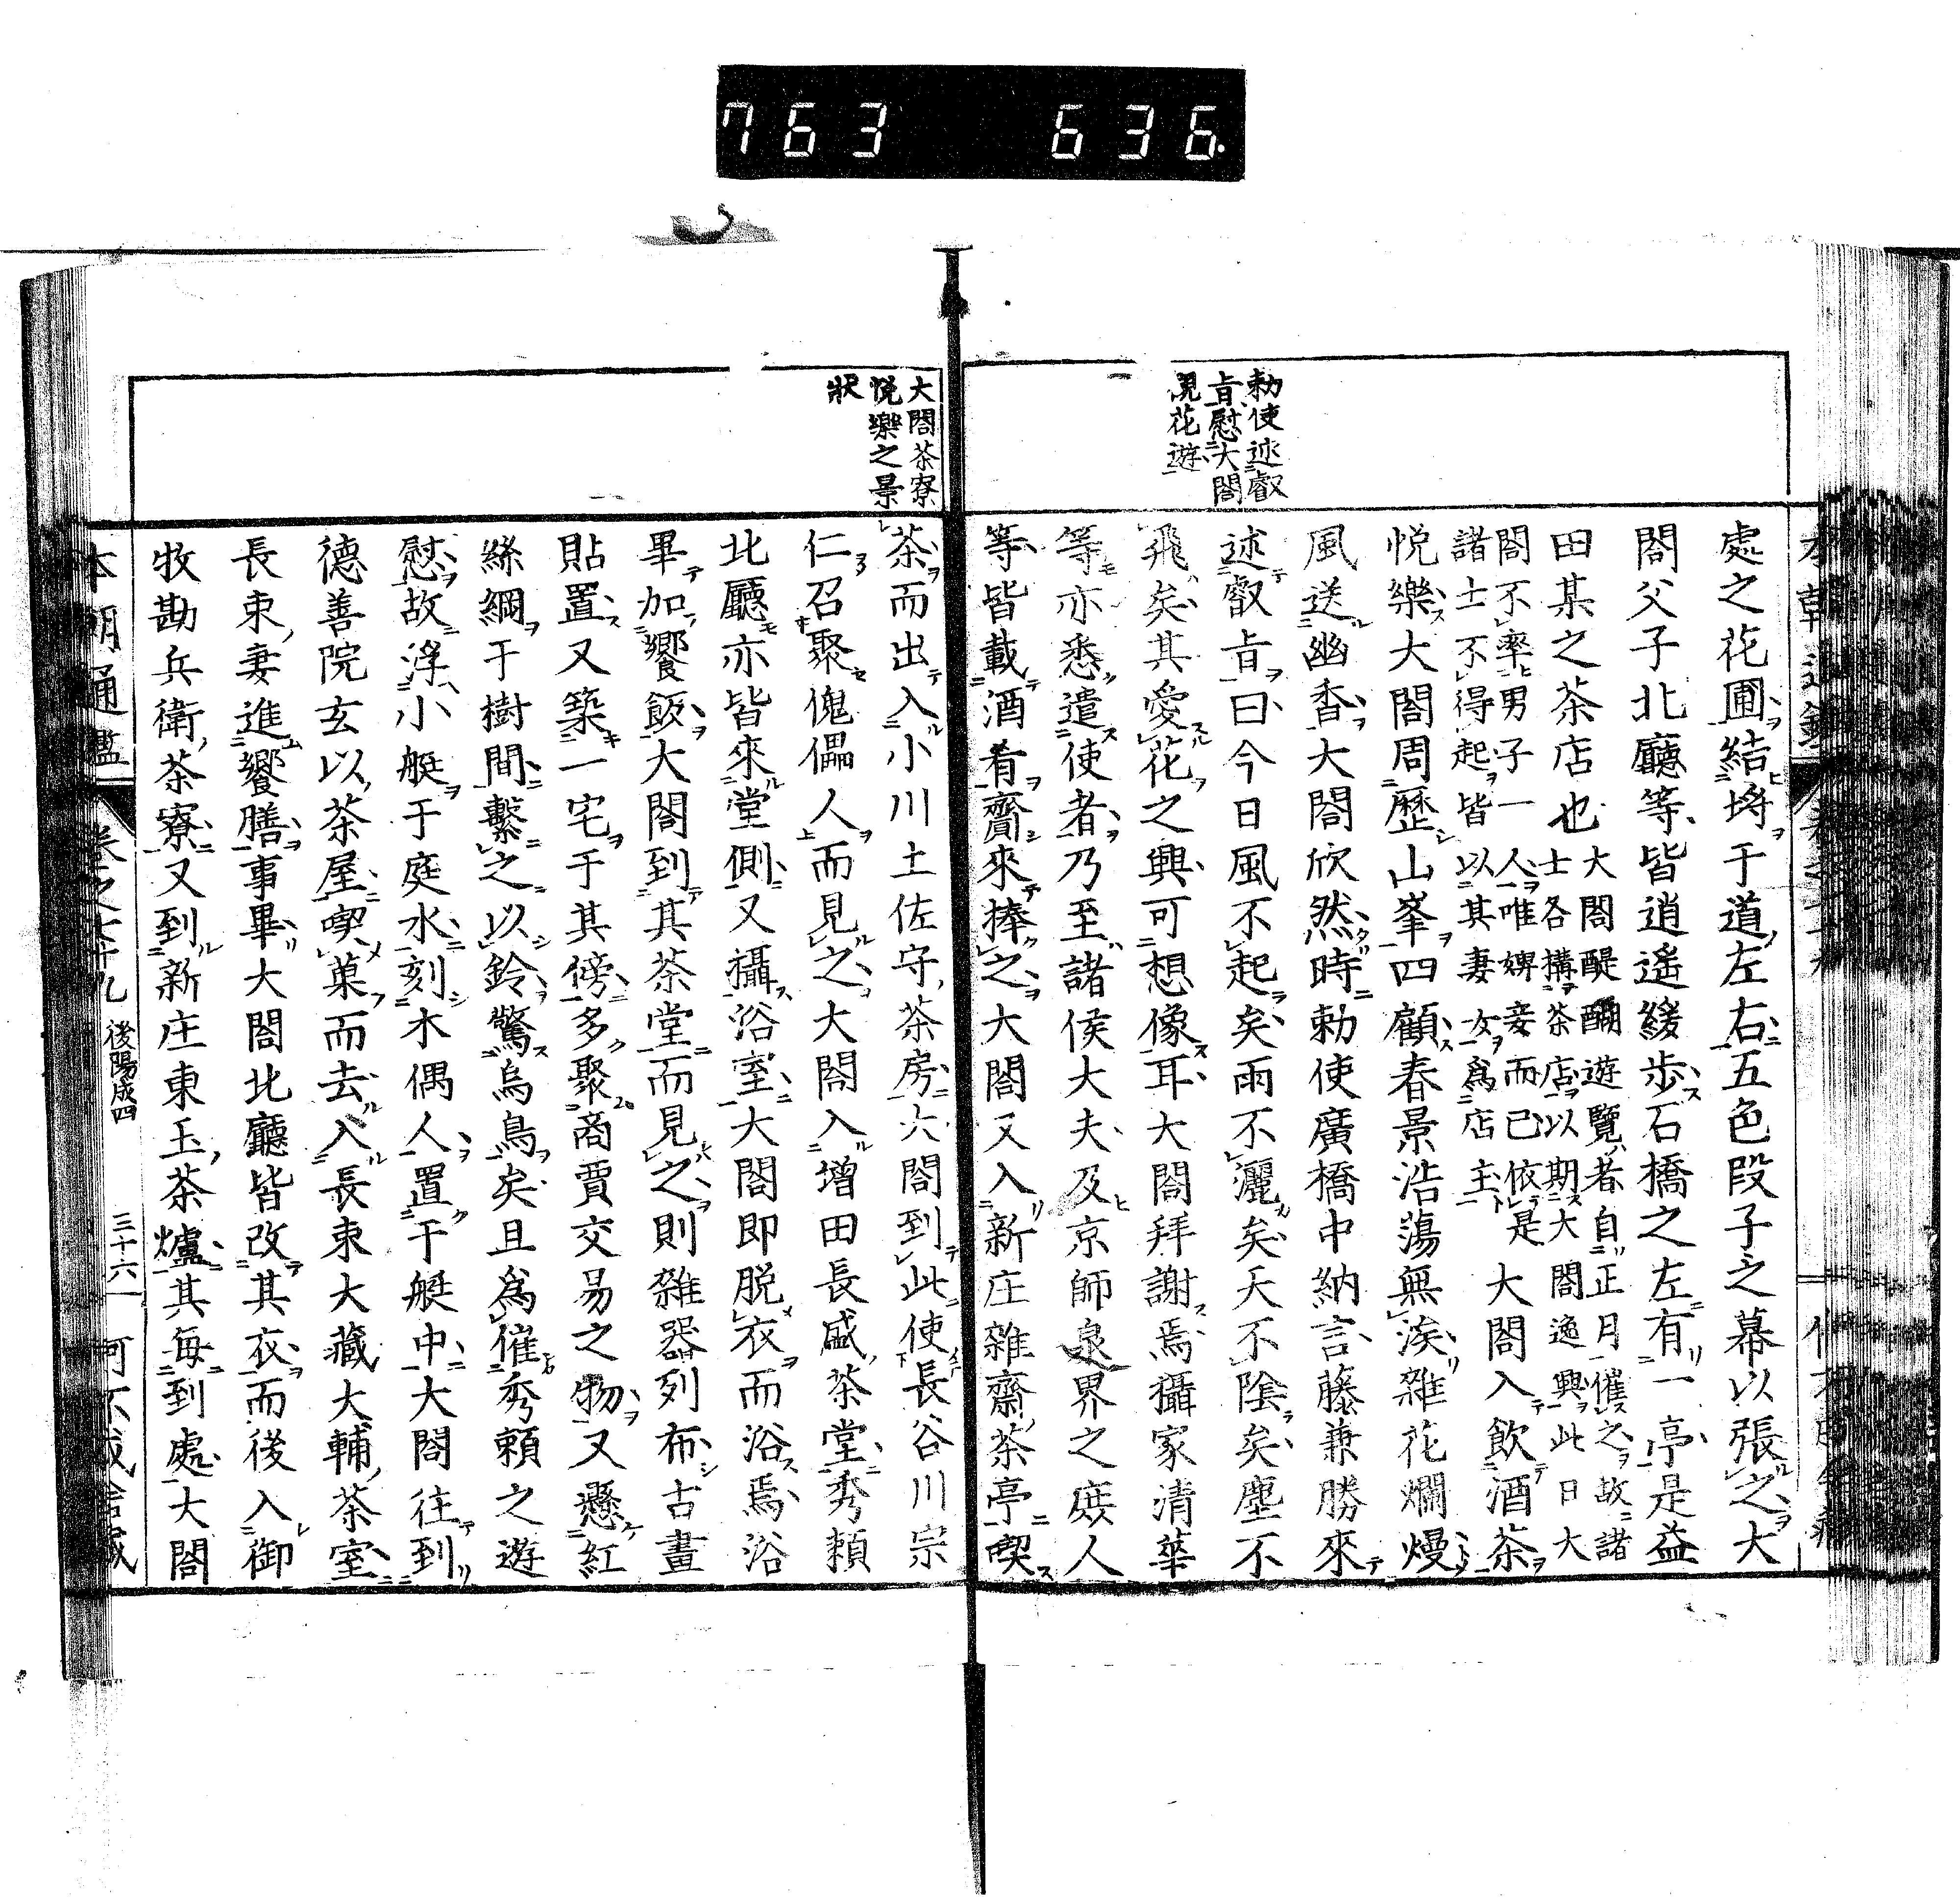 763 636.
勅使述叡
旨慰大閤
見花遊
處之花圃結垮于道左右五色段子之幕以張之大
閤父子北廳等皆逍遙緩步石橋之左有一亭是益
田某之茶店也
大閤醍醐遊覽者自正月催之故諸
士各搆茶店以期大閤逸興此日大
閤不率男子一人唯婢妾而已依是
諸士不得起皆以其妻女爲店主
大閤入飲酒茶
悅樂大閤周歷山峯四顧春景浩蕩無涘雜花爛熳
風送幽香大閤欣然時勅使廣橋中納言藤兼勝來
述叡旨曰今日風不起矣雨不灑矣天不陰矣塵不
飛矣其愛花之興可想像耳大閤拜謝焉攝家清華
等亦悉遣使者乃至諸侯大夫及京師泉界之庶人
等皆載酒肴齎來捧之大閤又入新庄雜齋茶亭喫
大閤茶寮
悅樂之景
狀
茶而出入小川土佐守茶房大閤到此使長谷川宗
仁召聚傀儡人而見之大閤入增田長盛茶堂秀賴
北廳亦皆來堂側又攝浴室大閤即脫衣而浴焉浴
畢加饗飯大閤到其茶堂而見之則雜器列布古畫
貼置又築一宅于其傍多聚商賈交易之物又懸紅
絲綱于樹間繫之以鈴驚烏鳥矣且爲催秀賴之遊
慰故浮小艇于庭水刻木偶人置于艇中大閤往到
德善院玄以茶屋喫菓而去入長束大藏大輔茶室
長束妻進饗膳事畢大閤北廳皆改其衣而後入御
牧勘兵衛茶寮又到新庄東玉茶爐其每到處大閤
本朝通鑑 卷之七十九 後陽成四 三十六